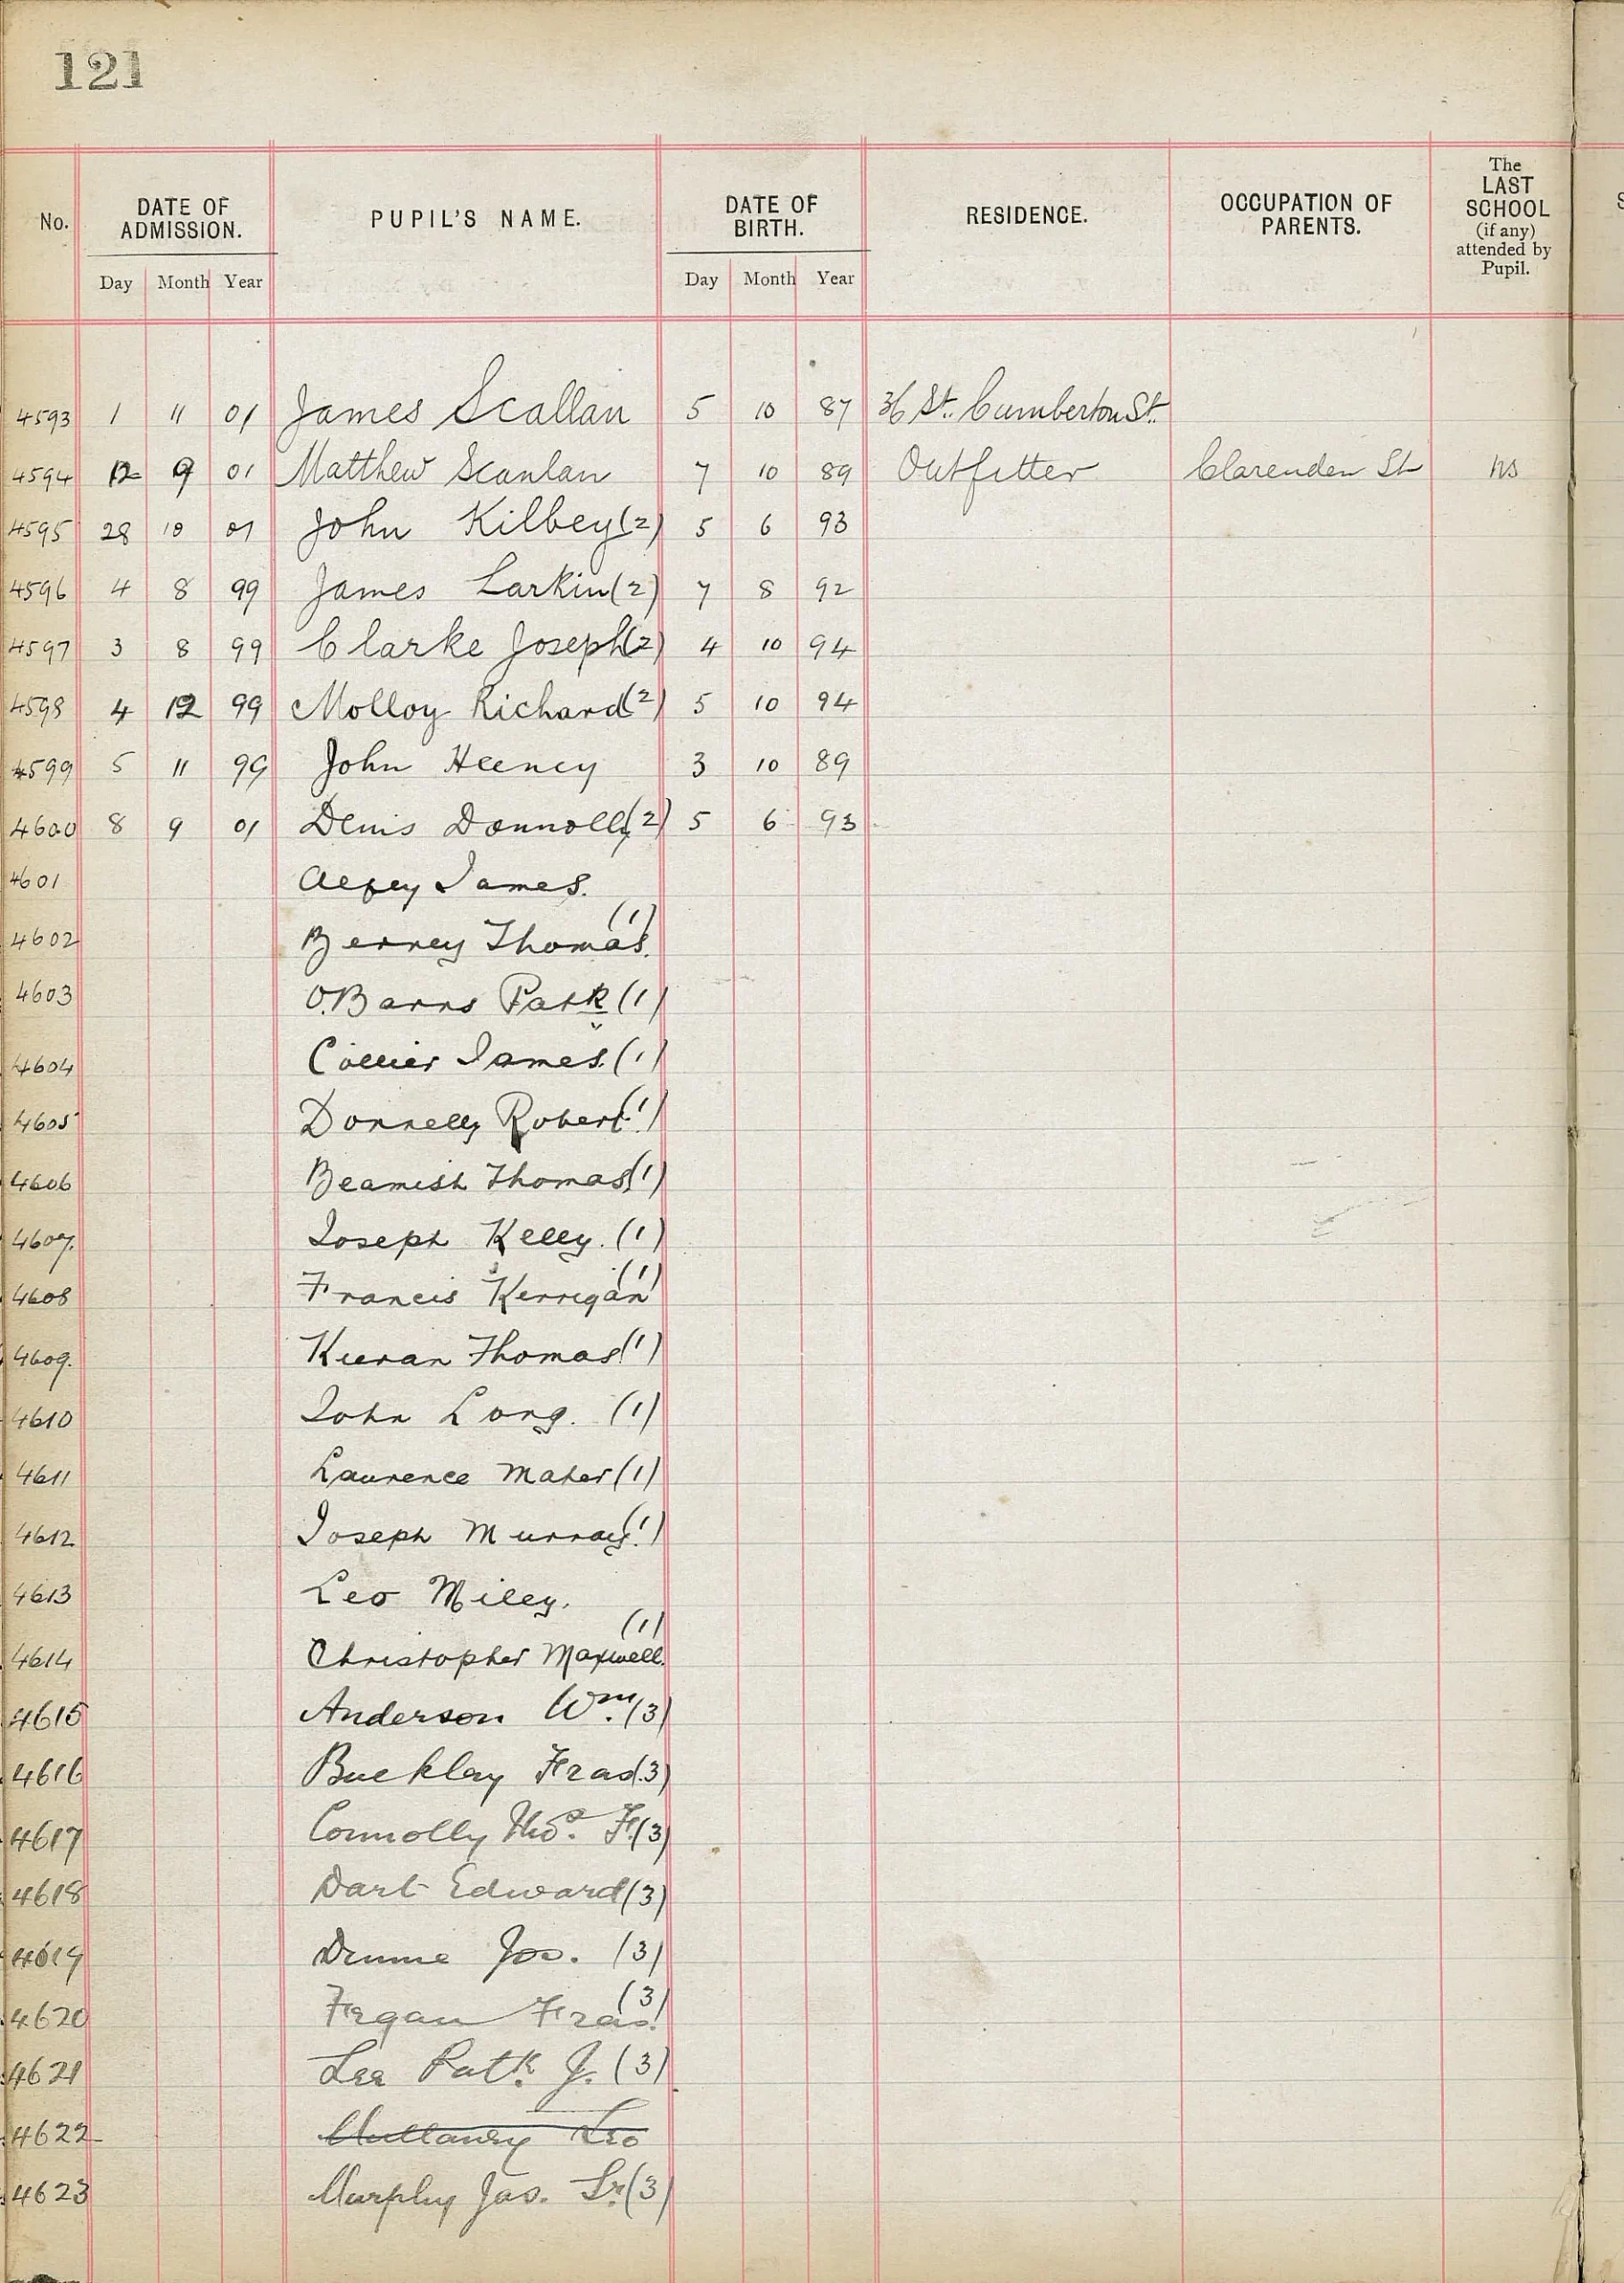 121
No. DATE OF ADMISSION. PUPIL'S NAME. DATE OF BIRTH. RESIDENCE. OCCUPATION OF PARENTS. The LAST SCHOOL (if any) attended by Pupil.
Day Month Year Day Month Year
4593 1 11 01 James Scallan 5 10 87 36 St. Cumberton St.
4594 12 9 01 Matthew Scanlan 7 10 89 Outfitter Clarenden St ns
4595 28 10 01 John Kilbey (2) 5 6 93
4596 4 8 99 James Larkin (2) 7 8 92
4597 3 8 99 Clarke Joseph (2) 4 10 94
4598 4 12 99 Molloy Richard (2) 5 10 94
4599 5 11 99 John Heeney 3 10 89
4600 8 9 01 Denis Donnolly (2) 5 6 93
4601 James.
4602 Berney Thomas. (1)
4603 Patk (1)
4604 Collier James. (1)
4605 Donnelly Robert. (1)
4606 Beamish Thomas (1)
4607. Joseph Kelly. (1)
4608 Francis Kerrigan (1)
4609. Kieran Thomas (1)
4610 John Long. (1)
4611 Laurence Maher (1)
4612 Joseph Murray. (1)
4613 Leo Miley.
4614 Christopher Maxwell. (1)
4615 Anderson Wm. (3)
4616 Buckley Fras. (3)
4617 Connolly Thos. F. (3)
4618 Dart Edward (3)
4619 Dunne Jos. (3)
4620 Fegan Fras. (3)
4621 Lee Patk. J. (3)
4622 Mullaney Leo
4623 Murphy Jas. (3)